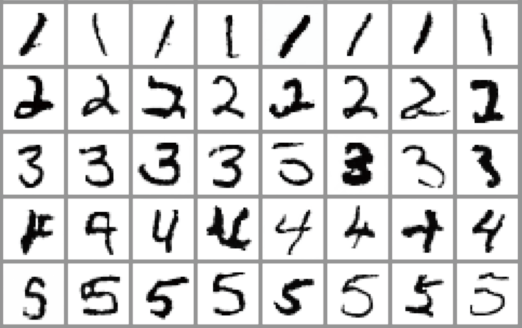 1 1 1 1 1 1 1 1
2 2 2 2 2 2 2 2
3 3 3 3 3 3 3 3
4 4 4 4 4 4 4 4
5 5 5 5 5 5 5 5